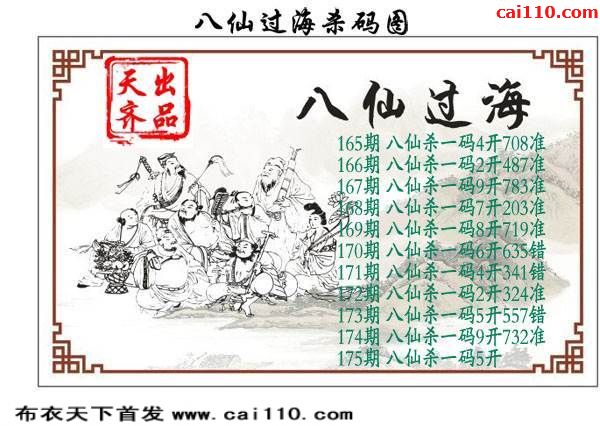 八仙过海杀码图
cai110.com
天出
齐品
八仙过海
165期 八仙杀一码4开708准
166期 八仙杀一码2开487准
167期 八仙杀一码9开783准
168期 八仙杀一码7开203准
169期 八仙杀一码8开719准
170期 八仙杀一码6开635错
171期 八仙杀一码4开341错
172期 八仙杀一码2开324准
173期 八仙杀一码5开557错
174期 八仙杀一码9开732准
175期 八仙杀一码5开
布衣天下首发 www.cai110.com